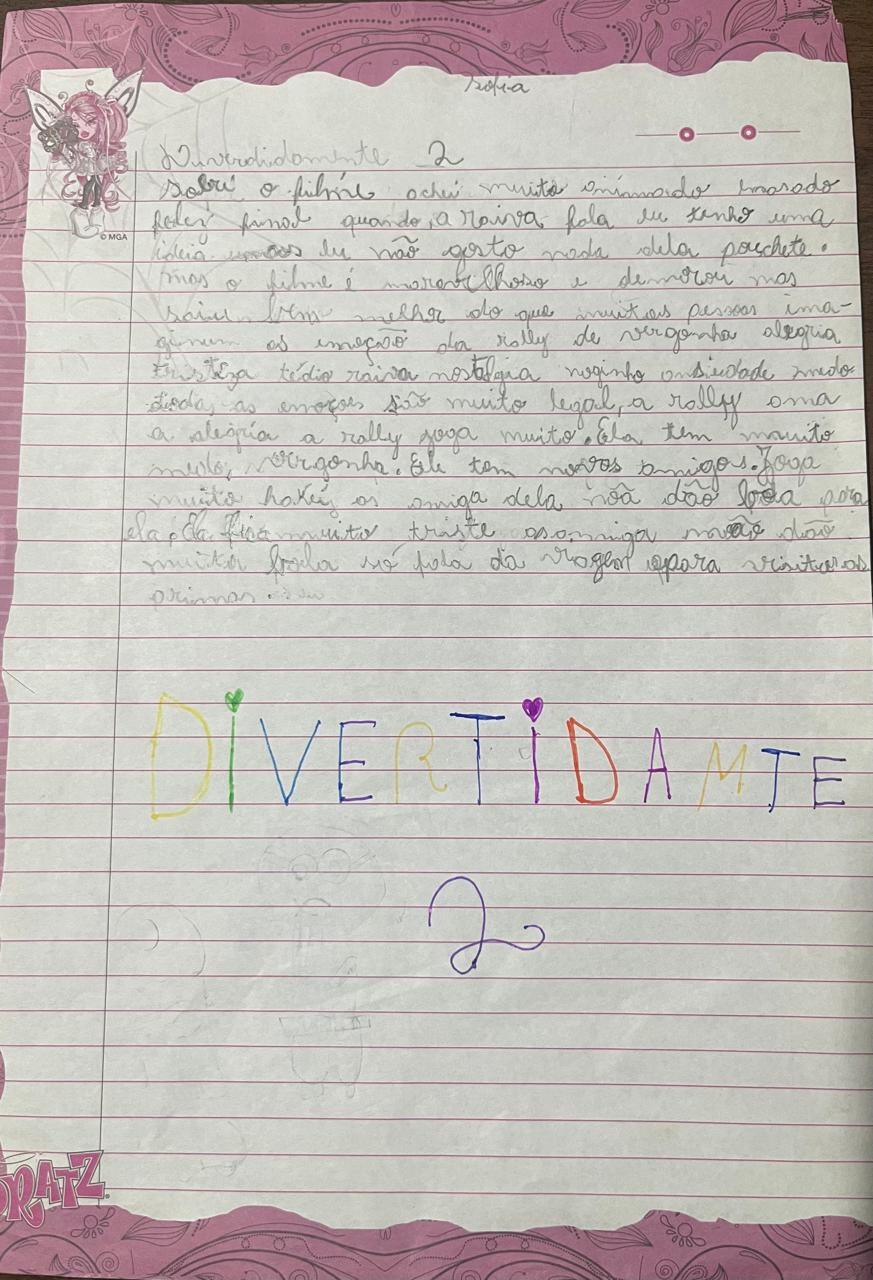 Sofia
Diverdidamente 2
Sobri o filme achei muito animado
final quando, a raiva fala eu tenho uma
ideia eu não gosto nada dela pouchete.
mas o filme é maravilhoso e demorou mas
saiu bem melhor do que muitas pessoas ima-
ginem as emoção da rally de vergonha alegria
tristeza tédio raiva nostalgia noginho ansiedade medo
toda, as emoções são muito legal, a rally ama
a alegria a rally joga muito. Ela tem muito
medo, vergonha. Ele tem novos amigos. Joga
muito hokey as amiga dela nõa dão bola para
ela. Ela fica muito triste as amiga não dão
muita bola só fala da viagem para visitar as
primas.
DiVERTiDAMTE
2
© MGA
BRATZ